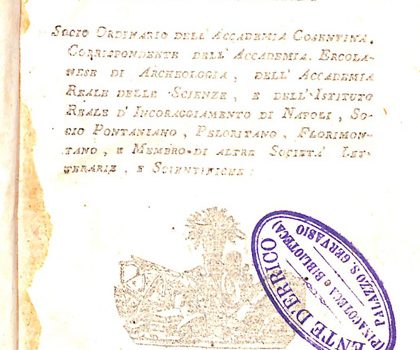 Socio Ordinario dell'Accademia Cosentina,
Corrispondente dell'Accademia Ercola-
nese di Archeologia, dell'Accademia
Reale delle Scienze, e dell'Istituto
Reale d'Incoraggiamento di Napoli, So-
cio Pontaniano, Peloritano, Florimon-
tano, e Membro di altre Società Let-
terarie, e Scientifiche.
ENTE D'ERRICO
(PINACOTECA e BIBLIOTECA)
PALAZZO S. GERVASIO